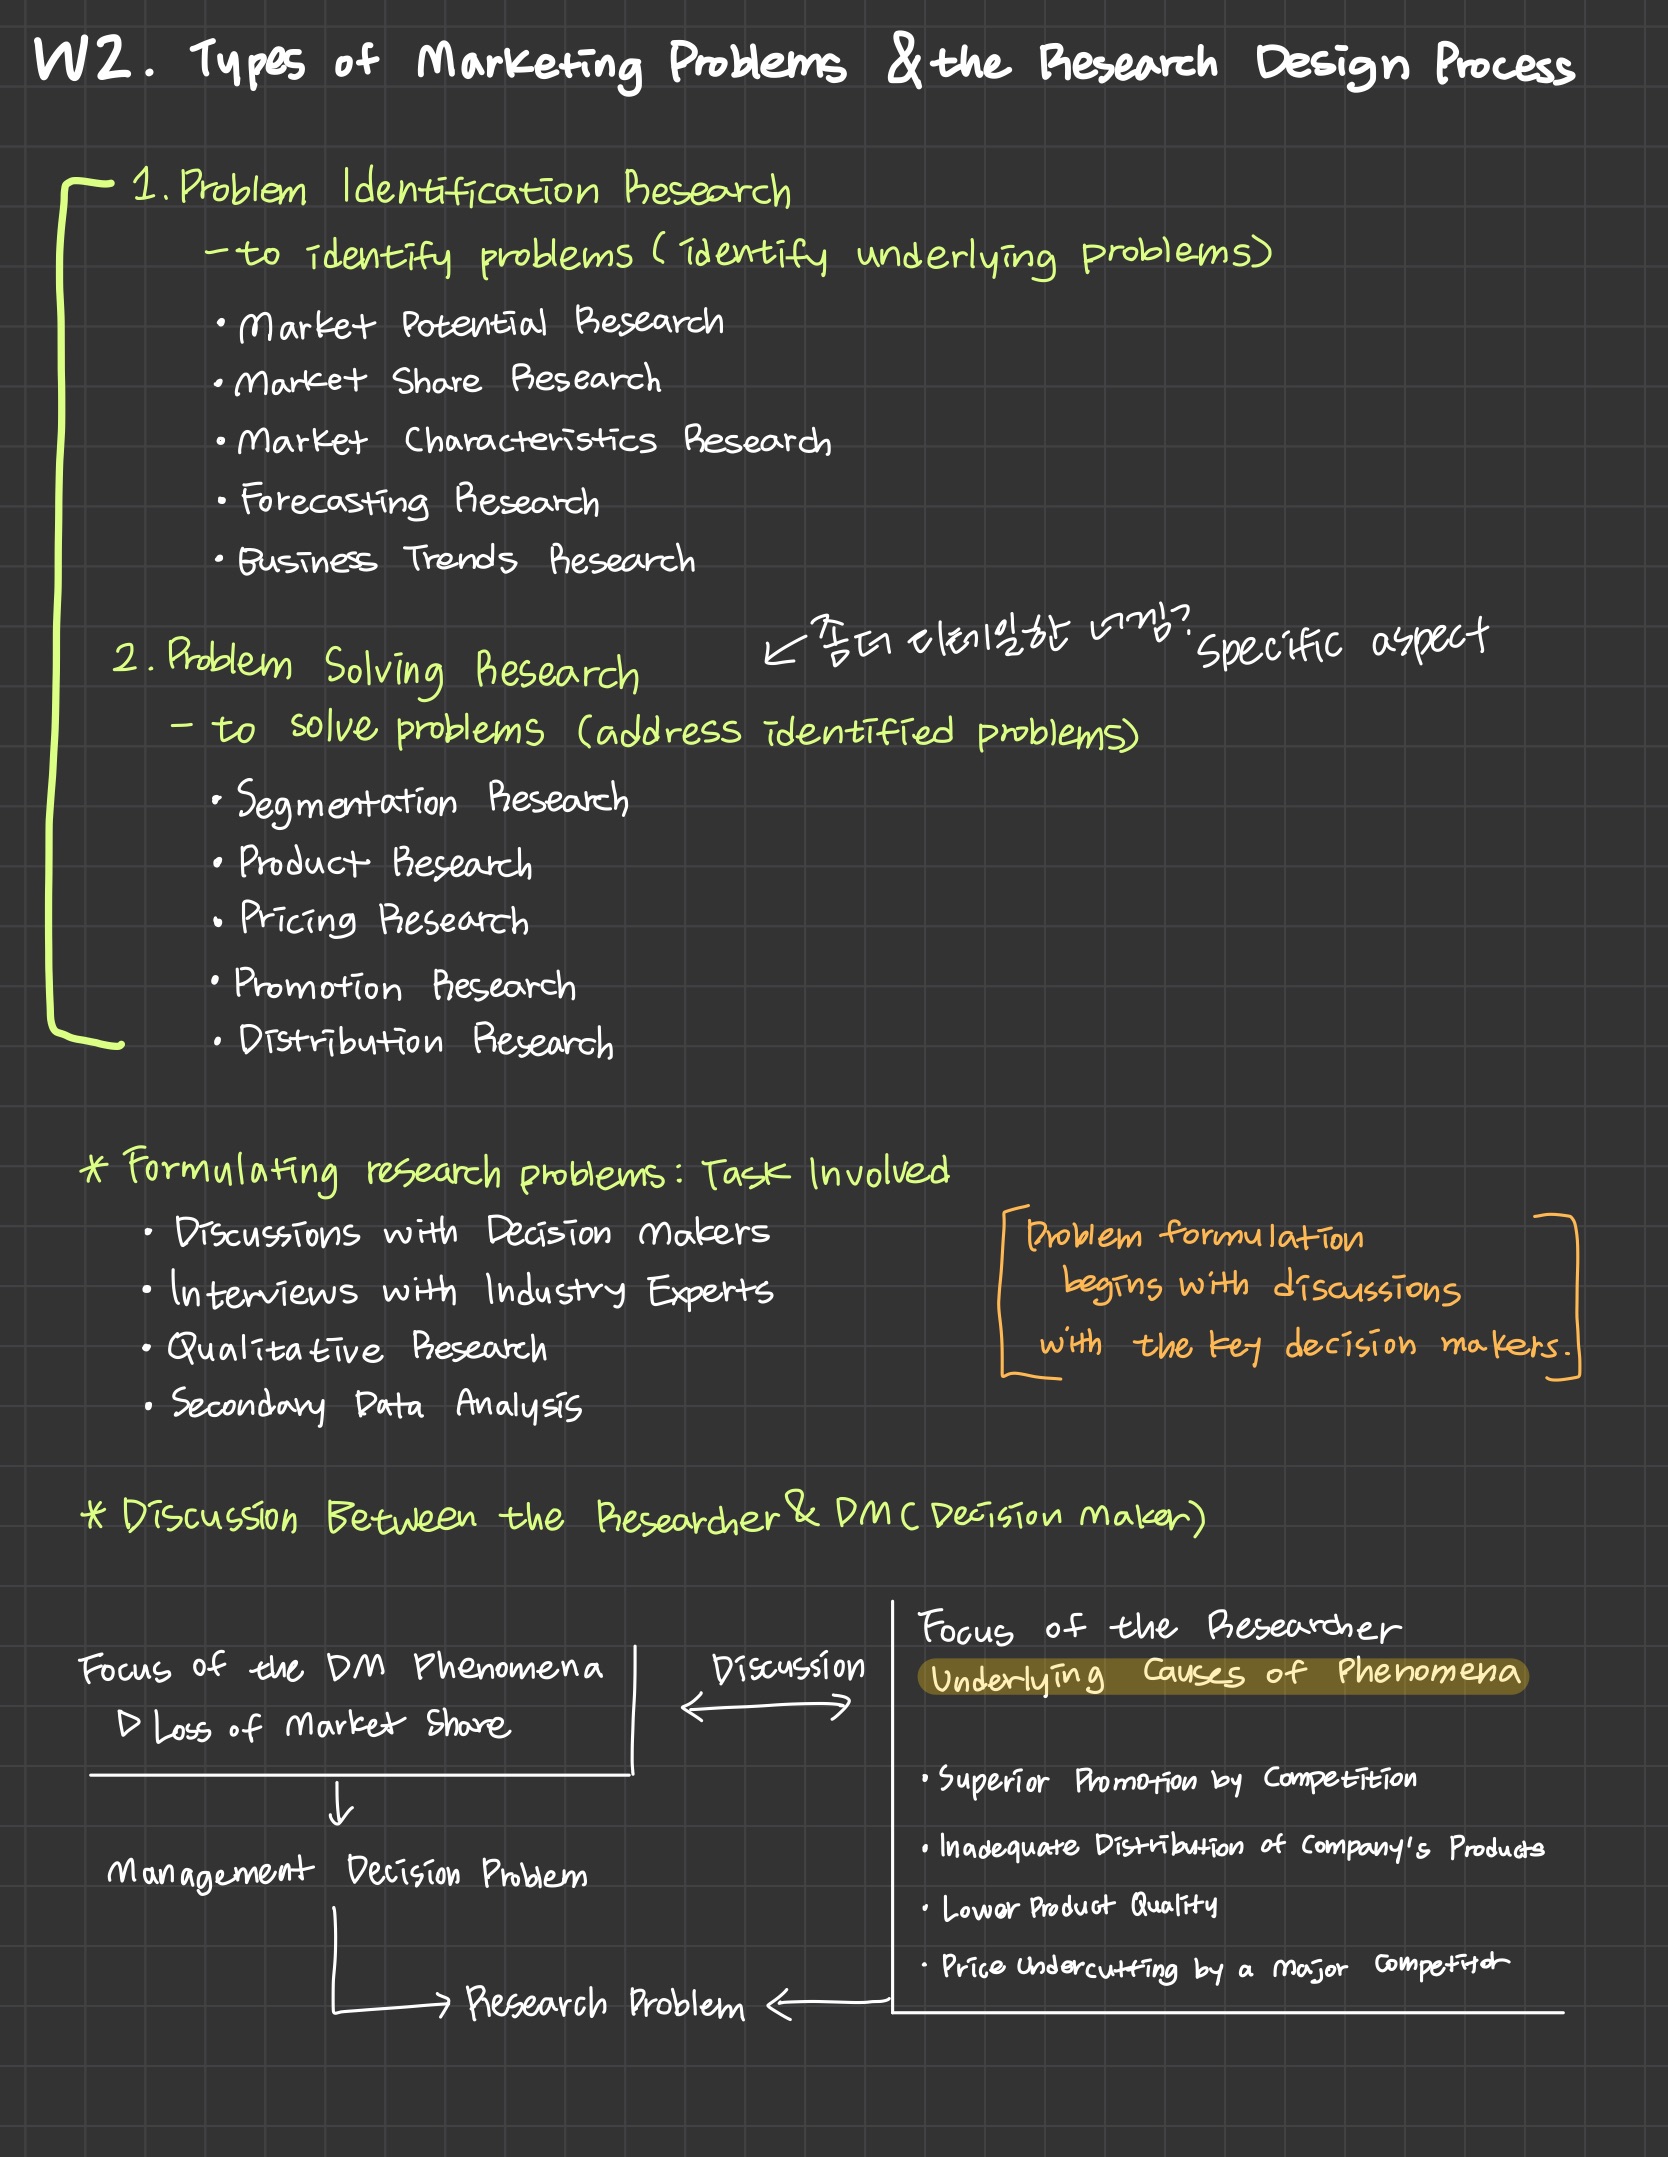 W2. Types of Marketing Problems & the Research Design Process
1. Problem Identification Research
- to identify problems (identify underlying problems)
• Market Potential Research
• Market Share Research
• Market Characteristics Research
• Forecasting Research
• Business Trends Research
좀 더 디테일한 너낌? specific aspect
2. Problem Solving Research
- to solve problems (address identified problems)
• Segmentation Research
• Product Research
• Pricing Research
• Promotion Research
• Distribution Research
* Formulating research problems: Task Involved
• Discussions with Decision Makers
• Interviews with Industry Experts
• Qualitative Research
• Secondary Data Analysis
Problem formulation
begins with discussions
with the key decision makers.
* Discussion Between the Researcher & DM (Decision Maker)
Focus of the DM Phenomena
▷ Loss of Market Share
Discussion
Focus of the Researcher
Underlying Causes of Phenomena
• Superior Promotion by Competition
• Inadequate Distribution of Company's Products
• Lower Product Quality
• Price Undercutting by a Major Competitor
Management Decision Problem
Research Problem